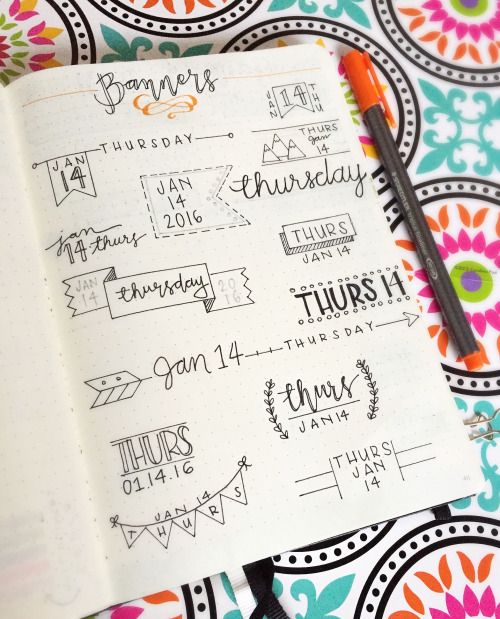 Banners
THURSDAY
JAN
14
JAN
14
THU
THURS
Jan
14
JAN
14
2016
thursday
jan
14 thurs
THURS
JAN 14
JAN
14
thursday
20
16
THURS 14
Jan 14
THURSDAY
thurs
JAN 14
THURS
01.14.16
THURS
JAN
14
JAN 14
THURS